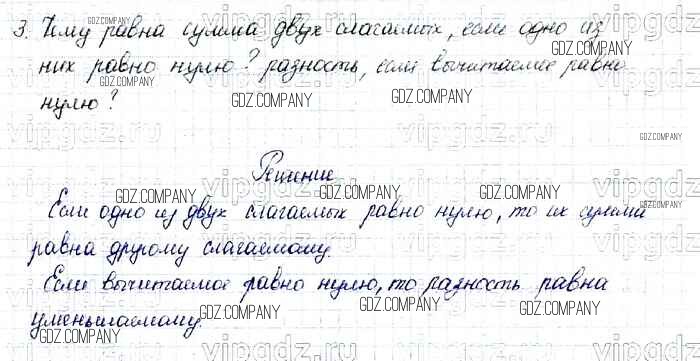 3. Чему равна сумма двух слагаемых, если одно из
них равно нулю? разность, если вычитаемое равно
нулю?
Решение
Если одно из двух слагаемых равно нулю, то их сумма
равна другому слагаемому.
Если вычитаемое равно нулю, то разность равна
уменьшаемому.
GDZ.COMPANY
vipgdz.ru